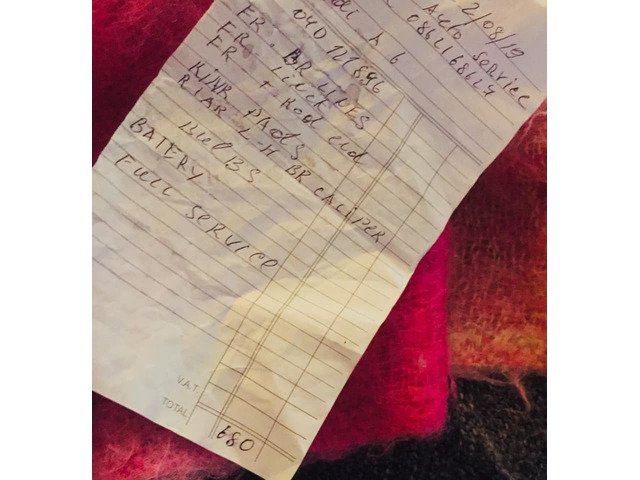 2/08/19
Auto service
0861168614
di A 6
04D 121896
FR. BR LINES
FR Linch
FR + Rod end
PADS
RIAR L-H BR CALIPER
BULBS
BATERY
FULL SERVICE
V.A.T.
TOTAL 680